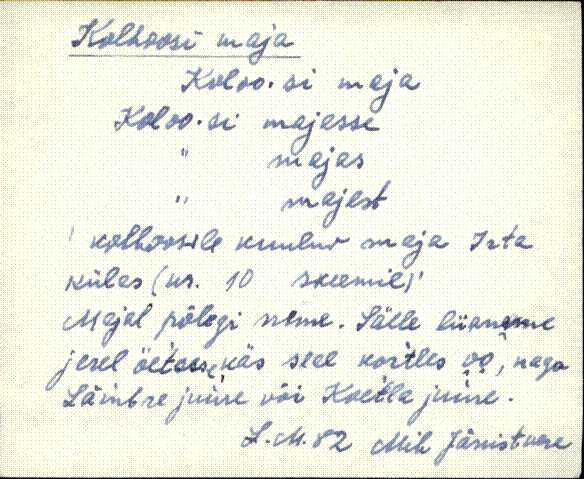 Kolhoosi maja
Koloo·si maja
Koloo·si majasse
" majas
" majast
' kolhoosile kuuluv maja Irta
külas (nr. 10 skeemil)'
Majal põlegi neme. Sälle
jerel öetasse, käs seel kortles oo, nagu
Läinbre juure või Koetla juure.
L.M. 82 Mih Järvistvere